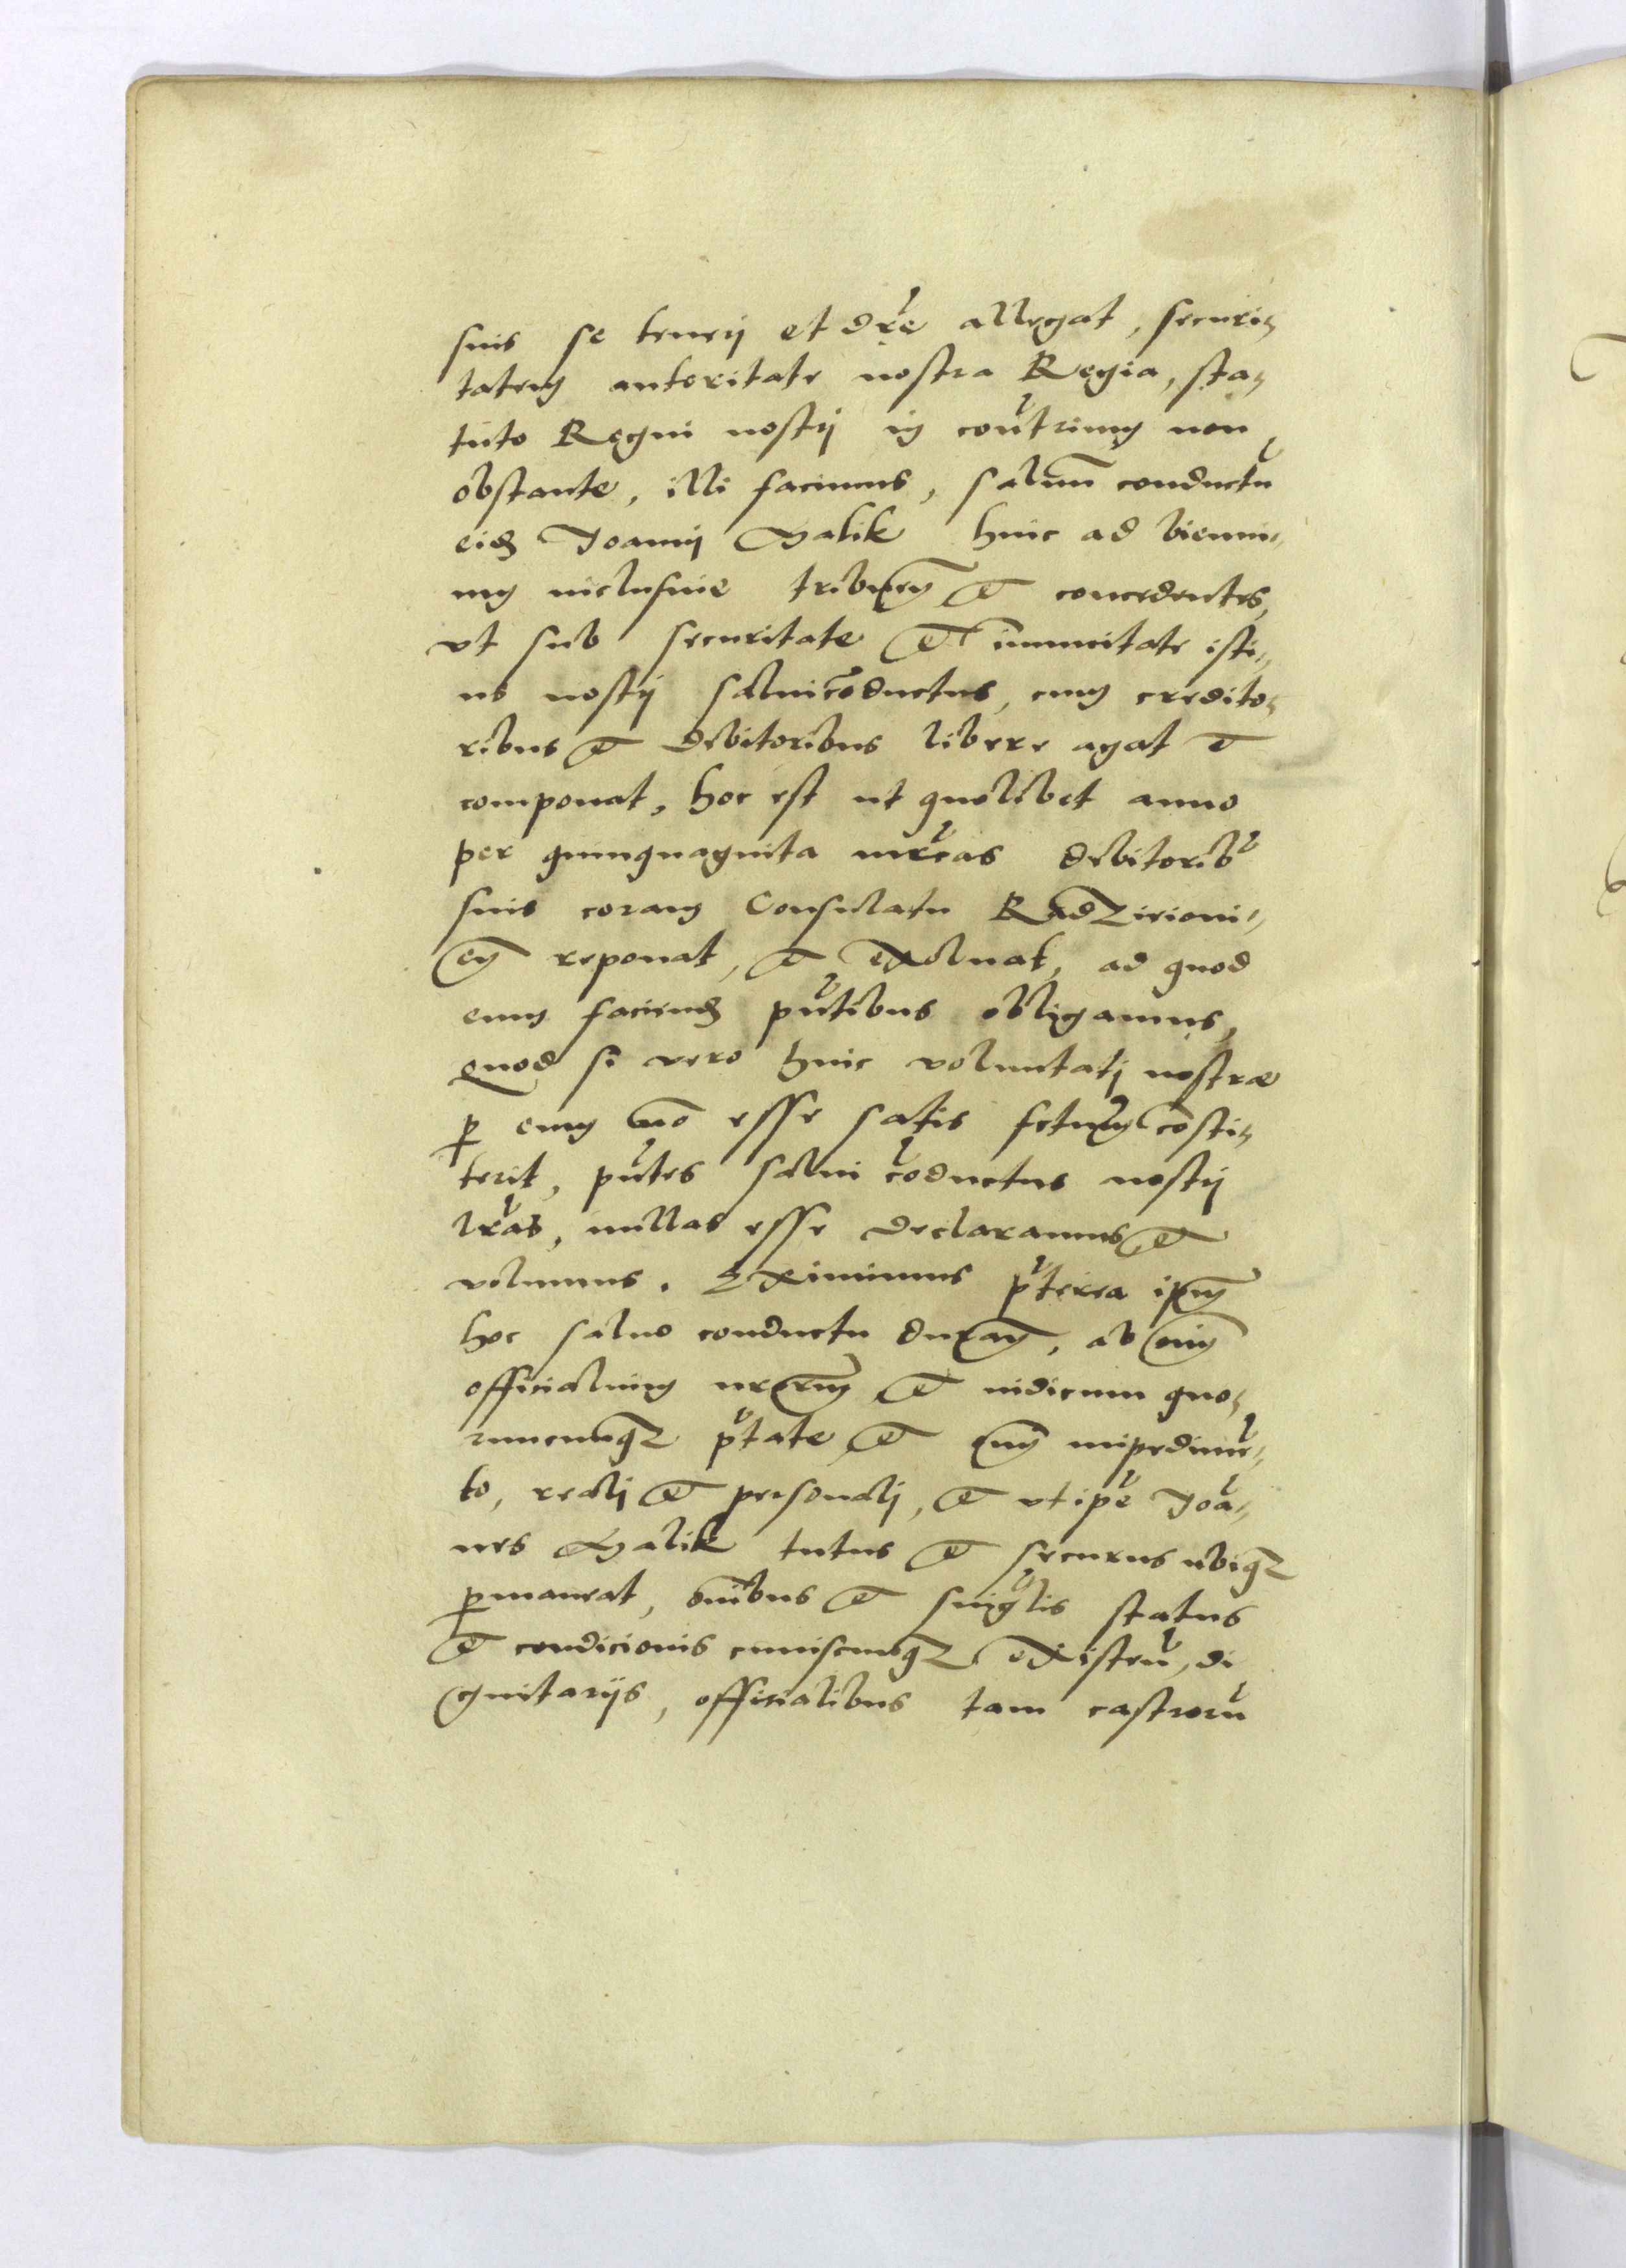 suis se tenerj et dre allegat, securi-
tatem autoritate nostra Regia, sta-
tuto Regni nostrj in contrium non
obstante, illi facimus, saluum conductu
eid Joannj Galik hinc ad bienni-
um inclusiue tribuen et concedentes,
vt sub securitate et imunitate isti-
us nostrj saluicoductus, cum credito-
ribus et debitoribus libere agat et
componat, hoc est ut quolibet anno
per quinquaginta mrcas debitorib
suis coram Consulatu Radzieioui-
en reponat, et exoluat, ad quod
eum faciend pntibus obligamus,
quod si vero huic voluntatj nostræ
p eum no esse satis fctum costi-
terit, pntes salui coductus nostrj
lras, nullas esse declaramus et
volumus. Eximimus pterea ipm
hoc saluo conductu duran, ab oim
officialium nrorum et iudicum quo-
rumcunq ptate et oim impedime-
to, realj et personalj, et vt ipe Joa-
nes Galik tutus et securus ubiq
pmaneat, omibus et singlis status
et condicionis cuiuscunq existen, di
gnitarijs, officialibus tam castroru